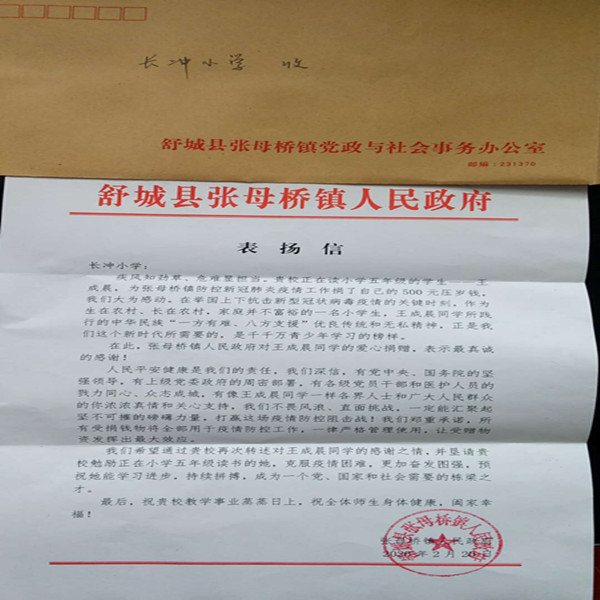 长冲小学 收
舒城县张母桥镇党政与社会事务办公室
邮编:231370
舒城县张母桥镇人民政府
表扬信
长冲小学:
疾风知劲草、危难显担当。贵校正在读小学五年级的学生——王
成晨,为张母桥镇防控新冠肺炎疫情工作捐了自己的500元压岁钱,
我们大为感动。在举国上下抗击新型冠状病毒疫情的关键时刻,作为
生在农村、长在农村,家庭并不富裕的一名小学生,王成晨同学所践
行的中华民族“一方有难、八方支援”优良传统和无私精神,正是我
们这个新时代所需要的,是千千万青少年学习的榜样。
在此,张母桥镇人民政府对王成晨同学的爱心捐赠,表示最真诚
的感谢!
人民平安健康是我们的责任,我们深信,有党中央、国务院的坚
强领导,有上级党委政府的周密部署,有各级党员干部和医护人员的
戮力同心、众志成城,有像王成晨同学一样各界人士和广大人民群众
的你浓浓真情和关心支持,我们不畏风浪、直面挑战,一定能汇聚起
坚不可摧的磅礴力量,打赢这场疫情防控阻击战!我们郑重承诺,所
有受捐钱物将全部用于疫情防控工作,一律严格管理使用,让受赠物
资发挥出最大效应。
我们希望通过贵校再次转达对王成晨同学的感谢之情,并恳请贵
校勉励正在小学五年级读书的她,克服疫情困难,更加奋发图强,预
祝她能学习进步,持续拼搏,成为一个党、国家和社会需要的栋梁之
才。
最后,祝贵校教学事业蒸蒸日上,祝全体师生身体健康,阖家幸
福!
张母桥镇人民政府
2020年2月20日
舒城县张母桥镇人民政府